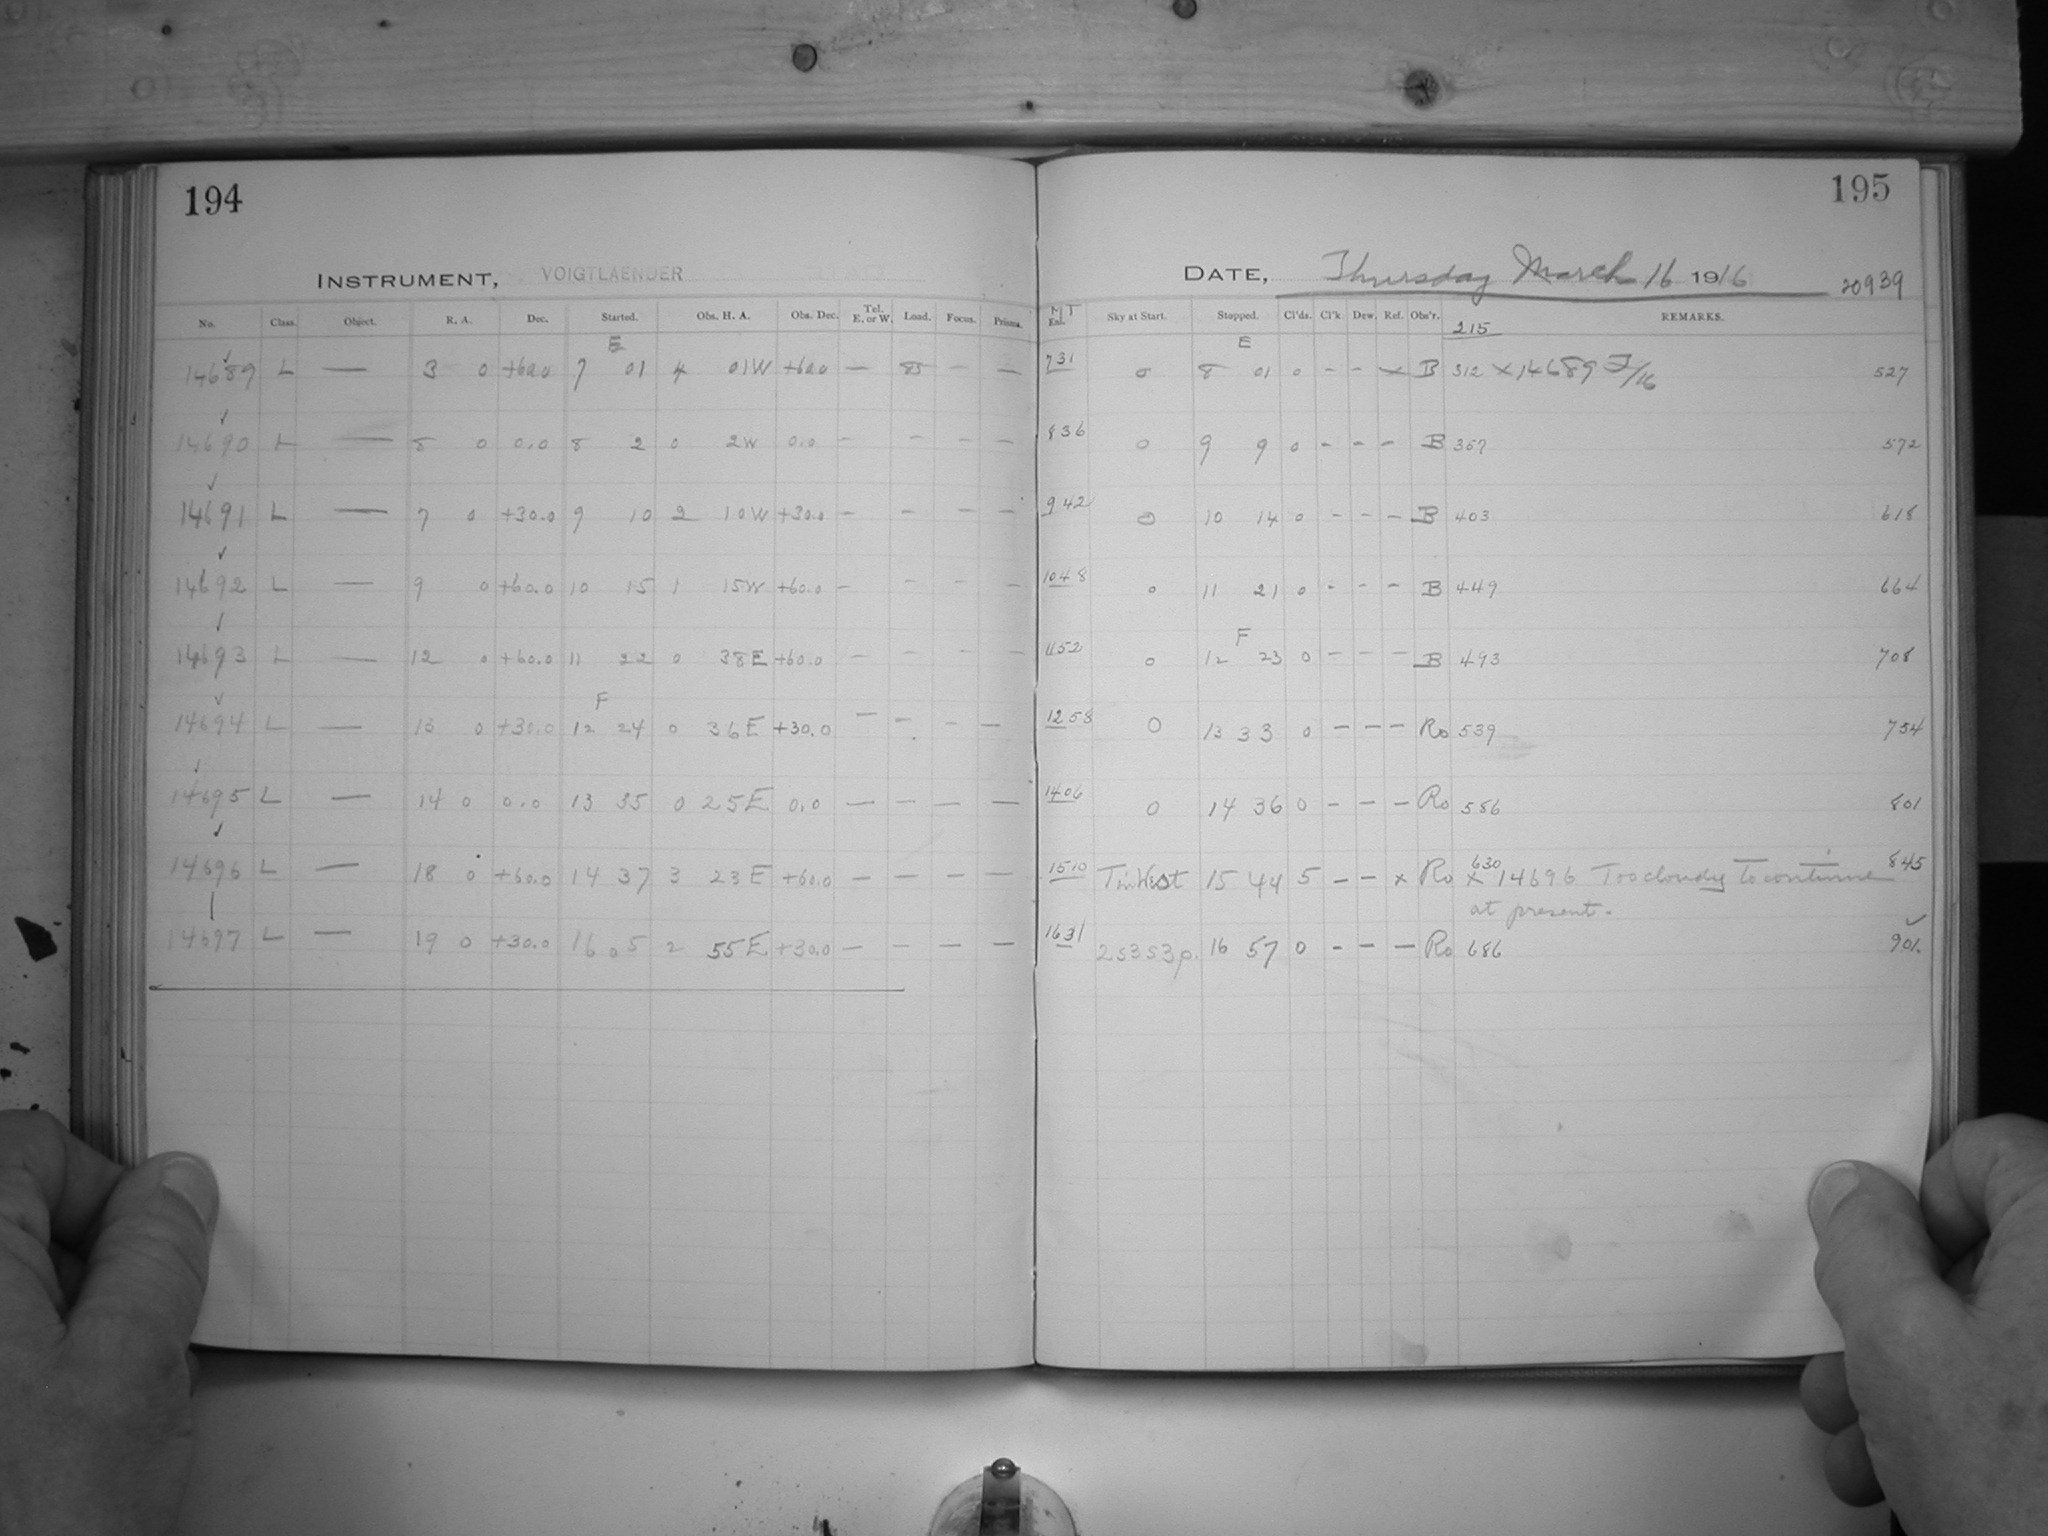 194
195
INSTRUMENT, VOIGTLAENDER
DATE, Thursday March 16 1916 20939
No. Class. Object. R. A. Dec. Started. Obs. H. A. Obs. Dec. Tel. E. or W. Load. Focus. Prisms. MT Sky at Start. Stopped. Cl'ds. Cl'k Dew. Ref. Obs'r. REMARKS.
215
E E
14689 L — 3 0 +60.0 7 01 4 01W +60.0 — 85 — — 731 0 8 01 0 - - x B 312 x 14689 F/16 527
14690 L — 8 0 0.0 8 2 0 2W 0.0 - - - - 836 0 9 9 0 - - - B 357 572
14691 L — 7 0 +30.0 9 10 2 10W +30.0 - - - - 942 0 10 14 0 - - - B 403 618
14692 L — 9 0 +60.0 10 15 1 15W +60.0 - - - - 1048 0 11 21 0 - - - B 449 664
F
14693 L — 12 0 +60.0 11 22 0 38E +60.0 - - - - 1152 0 12 23 0 - - - B 493 708
F
14694 L — 13 0 +30.0 12 24 0 36E +30.0 - - - - 1258 0 13 33 0 - - - Ro 539 754
14695 L — 14 0 0.0 13 35 0 25E 0.0 — — — — 1406 0 14 36 0 - - - Ro 586 801
14696 L — 18 0 +60.0 14 37 3 23E +60.0 — — — — 1510 T in West 15 44 5 - - x Ro 630 x 14696 Too cloudy to continue 845
at present.
14697 L — 19 0 +30.0 16 05 2 55E +30.0 — — — — 1631 2s3s3p. 16 57 0 - - — Ro 686 901